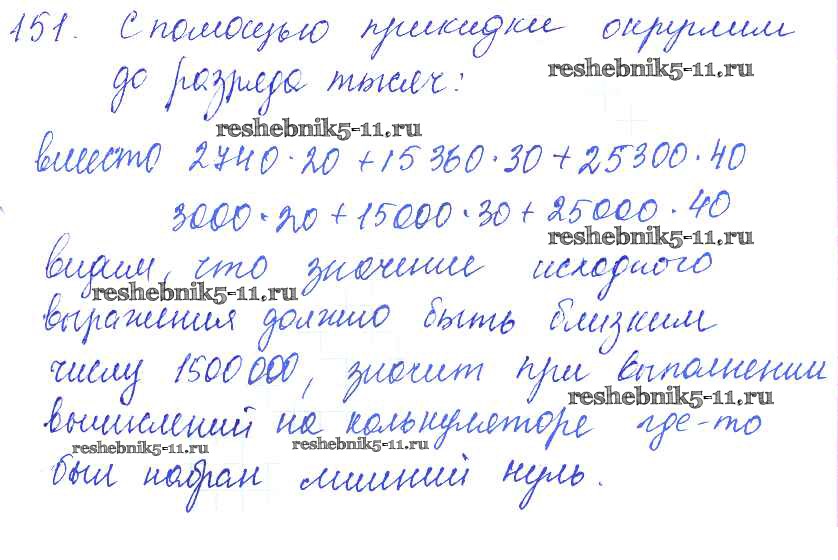 151. С помощью прикидки округлим
reshebnik5-11.ru
до разряда тысяч:
reshebnik5-11.ru
вместо 2740·20+15360·30+25300·40
3000·20+15000·30+25000·40
reshebnik5-11.ru
видим, что значение исходного
reshebnik5-11.ru
выражения должно быть близким
числу 1500000, значит при выполнении
reshebnik5-11.ru
вычислений на калькуляторе где-то
reshebnik5-11.ru reshebnik5-11.ru
был набран лишний нуль.